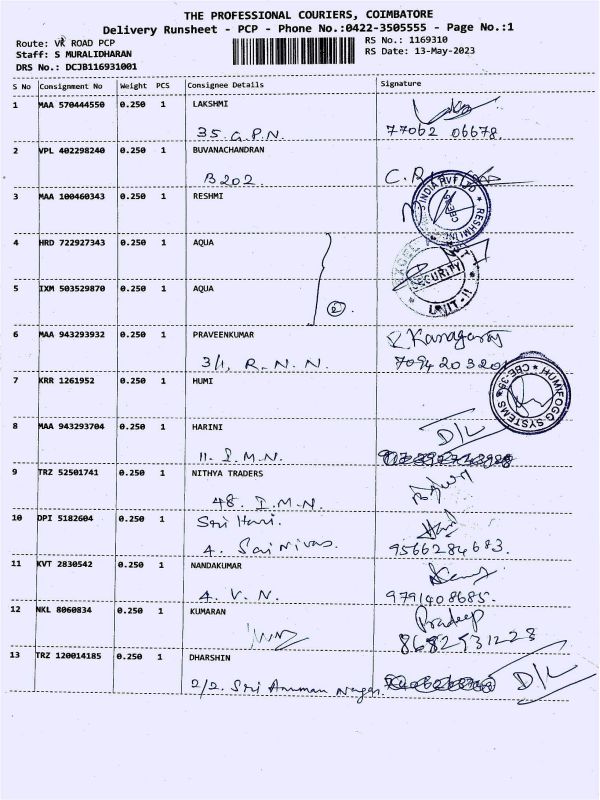 THE PROFESSIONAL COURIERS, COIMBATORE
Delivery Runsheet - PCP - Phone No.:0422-3505555 - Page No.:1
Route: VK ROAD PCP RS No.: 1169310
Staff: S MURALIDHARAN RS Date: 13-May-2023
DRS No.: DCJB116931001
S No Consignment No Weight PCS Consignee Details Signature
1 MAA 570444550 0.250 1 LAKSHMI
35. G.P.N. 77062 06678.
2 VPL 402298240 0.250 1 BUVANACHANDRAN
B202.
3 MAA 100460343 0.250 1 RESHMI
4 HRD 722927343 0.250 1 AQUA
SECURITY
UNIT-II
5 IXM 503529870 0.250 1 AQUA
2
6 MAA 943293932 0.250 1 PRAVEENKUMAR
3/1, R.N.N.
7 KRR 1261952 0.250 1 HUMI
HUMIFOGG SYSTEMS
8 MAA 943293704 0.250 1 HARINI
D/L
11. I.M.N.
9 TRZ 52501741 0.250 1 NITHYA TRADERS
48. I.M.N.
10 DPI 5182604 0.250 1 Sri Hari.
4. Sai Nivas. 9566284683.
11 KVT 2830542 0.250 1 NANDAKUMAR
4. V.N. 9791408685.
12 NKL 8060834 0.250 1 KUMARAN Pradeep
8682931228
13 TRZ 120014185 0.250 1 DHARSHIN
2/2. Sri Amman Nagar. D/L